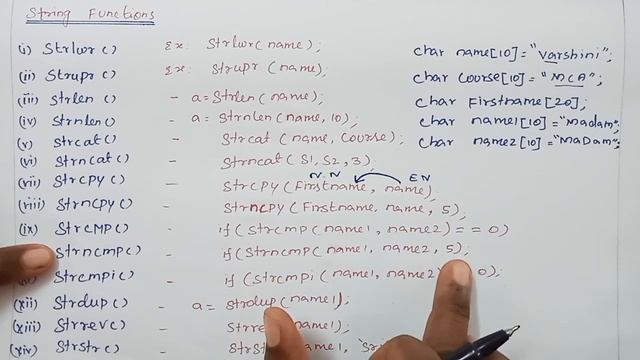 String Functions
(i) Strlwr() Ex: Strlwr(name);
(ii) Strupr() Ex: Strupr(name);
(iii) Strlen() - a=Strlen(name);
(iv) Strnlen() - a=Strnlen(name, 10);
(v) Strcat() - Strcat(name, Course);
(vi) Strncat() - Strncat(S1, S2, 3);
N.N EN
(vii) StrCPY() - StrCPY(Firstname, name);
(viii) StrnCPY() - StrnCPY(Firstname, name, 5);
(ix) StrCMP() - if(strcmp(name1, name2) == 0)
Strncmp() - if(Strncmp(name1, name2, 5);
Strcmpi() - if (Strcmpi(name1, name2) 0);
(xii) Strdup() - a= Strdup(name1);
(xiii) Strrev() - name1);
(xiv) Strstr() - name1,
char name[10]="Varshini";
char Course[10]="MCA";
char Firstname[20];
char name1[10]="Madam";
char name2[10]="MaDam";